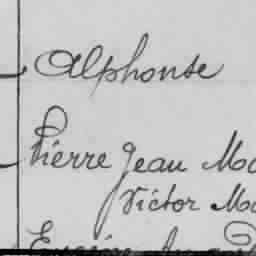 Alphonse
Pierre Jean Ma
Victor Ma